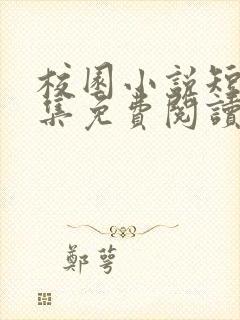 校園小說短
集免費閱讀
鄭萼